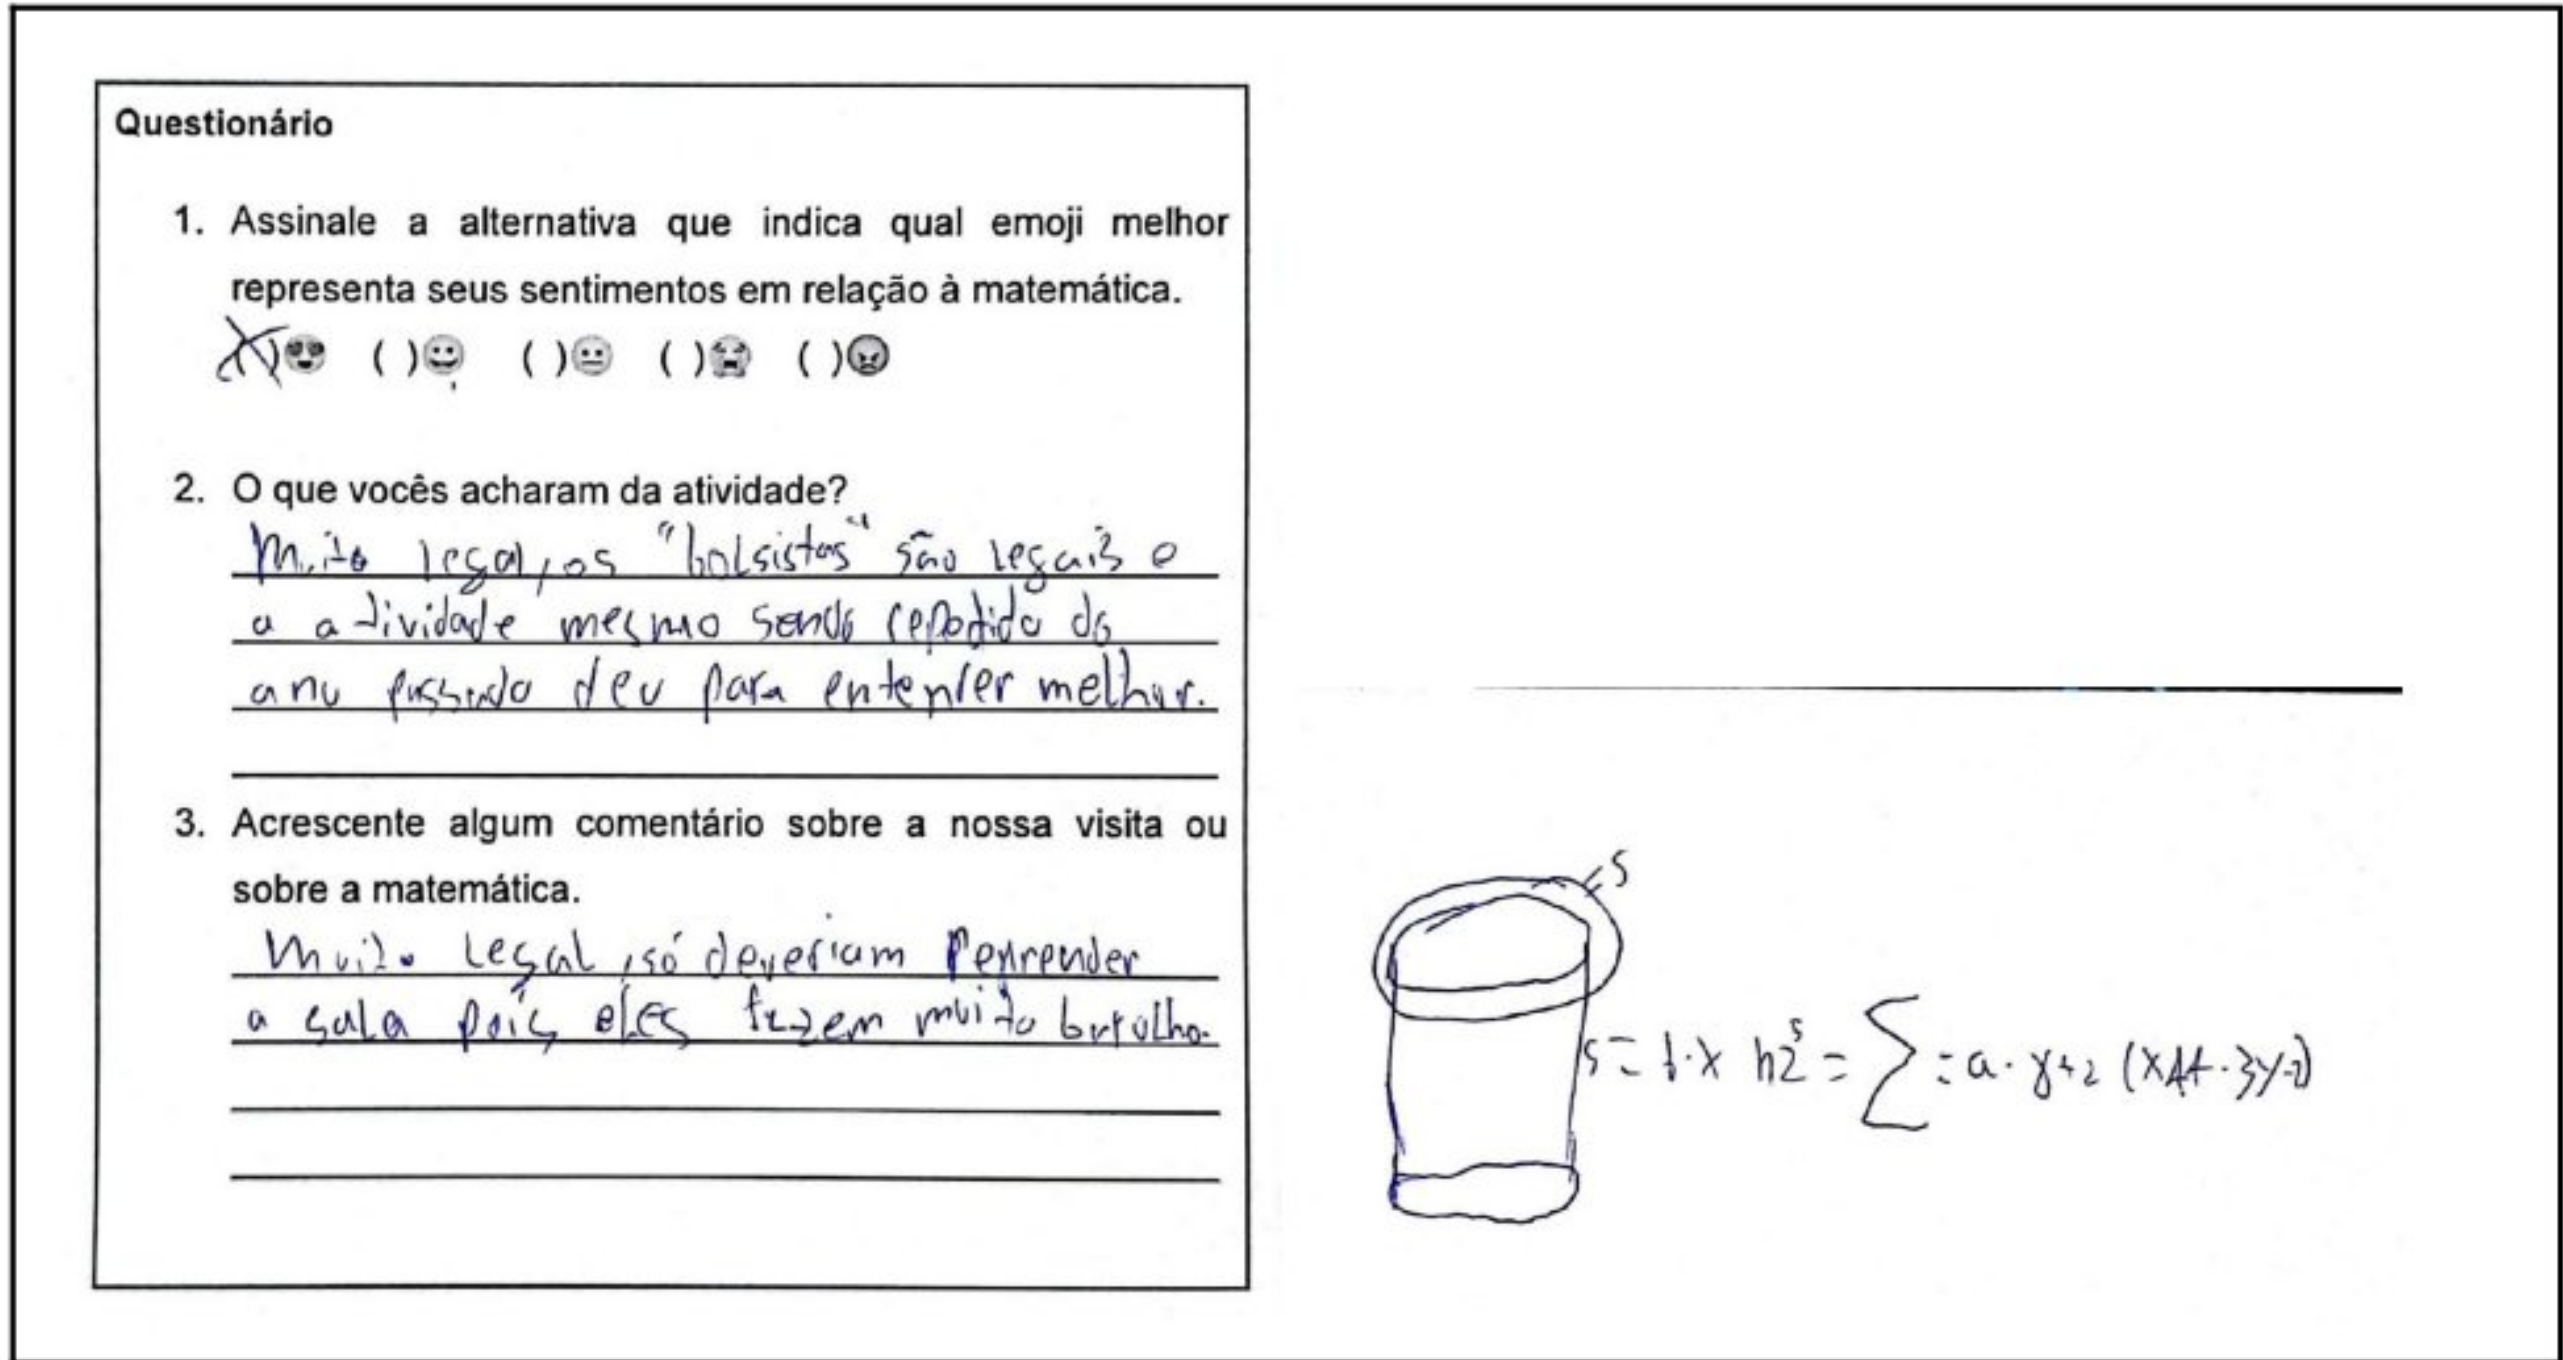 Questionário
1. Assinale a alternativa que indica qual emoji melhor
representa seus sentimentos em relação à matemática.
(X)😍 ( )😀 ( )😐 ( )😭 ( )😠
2. O que vocês acharam da atividade?
Muito legal, os "bolsistas" são legais e
a atividade mesmo sendo repetida do
ano passado deu para entender melhor.
3. Acrescente algum comentário sobre a nossa visita ou
sobre a matemática.
Muito legal, só deveriam
a sala pois eles fazem muito barulho.
S